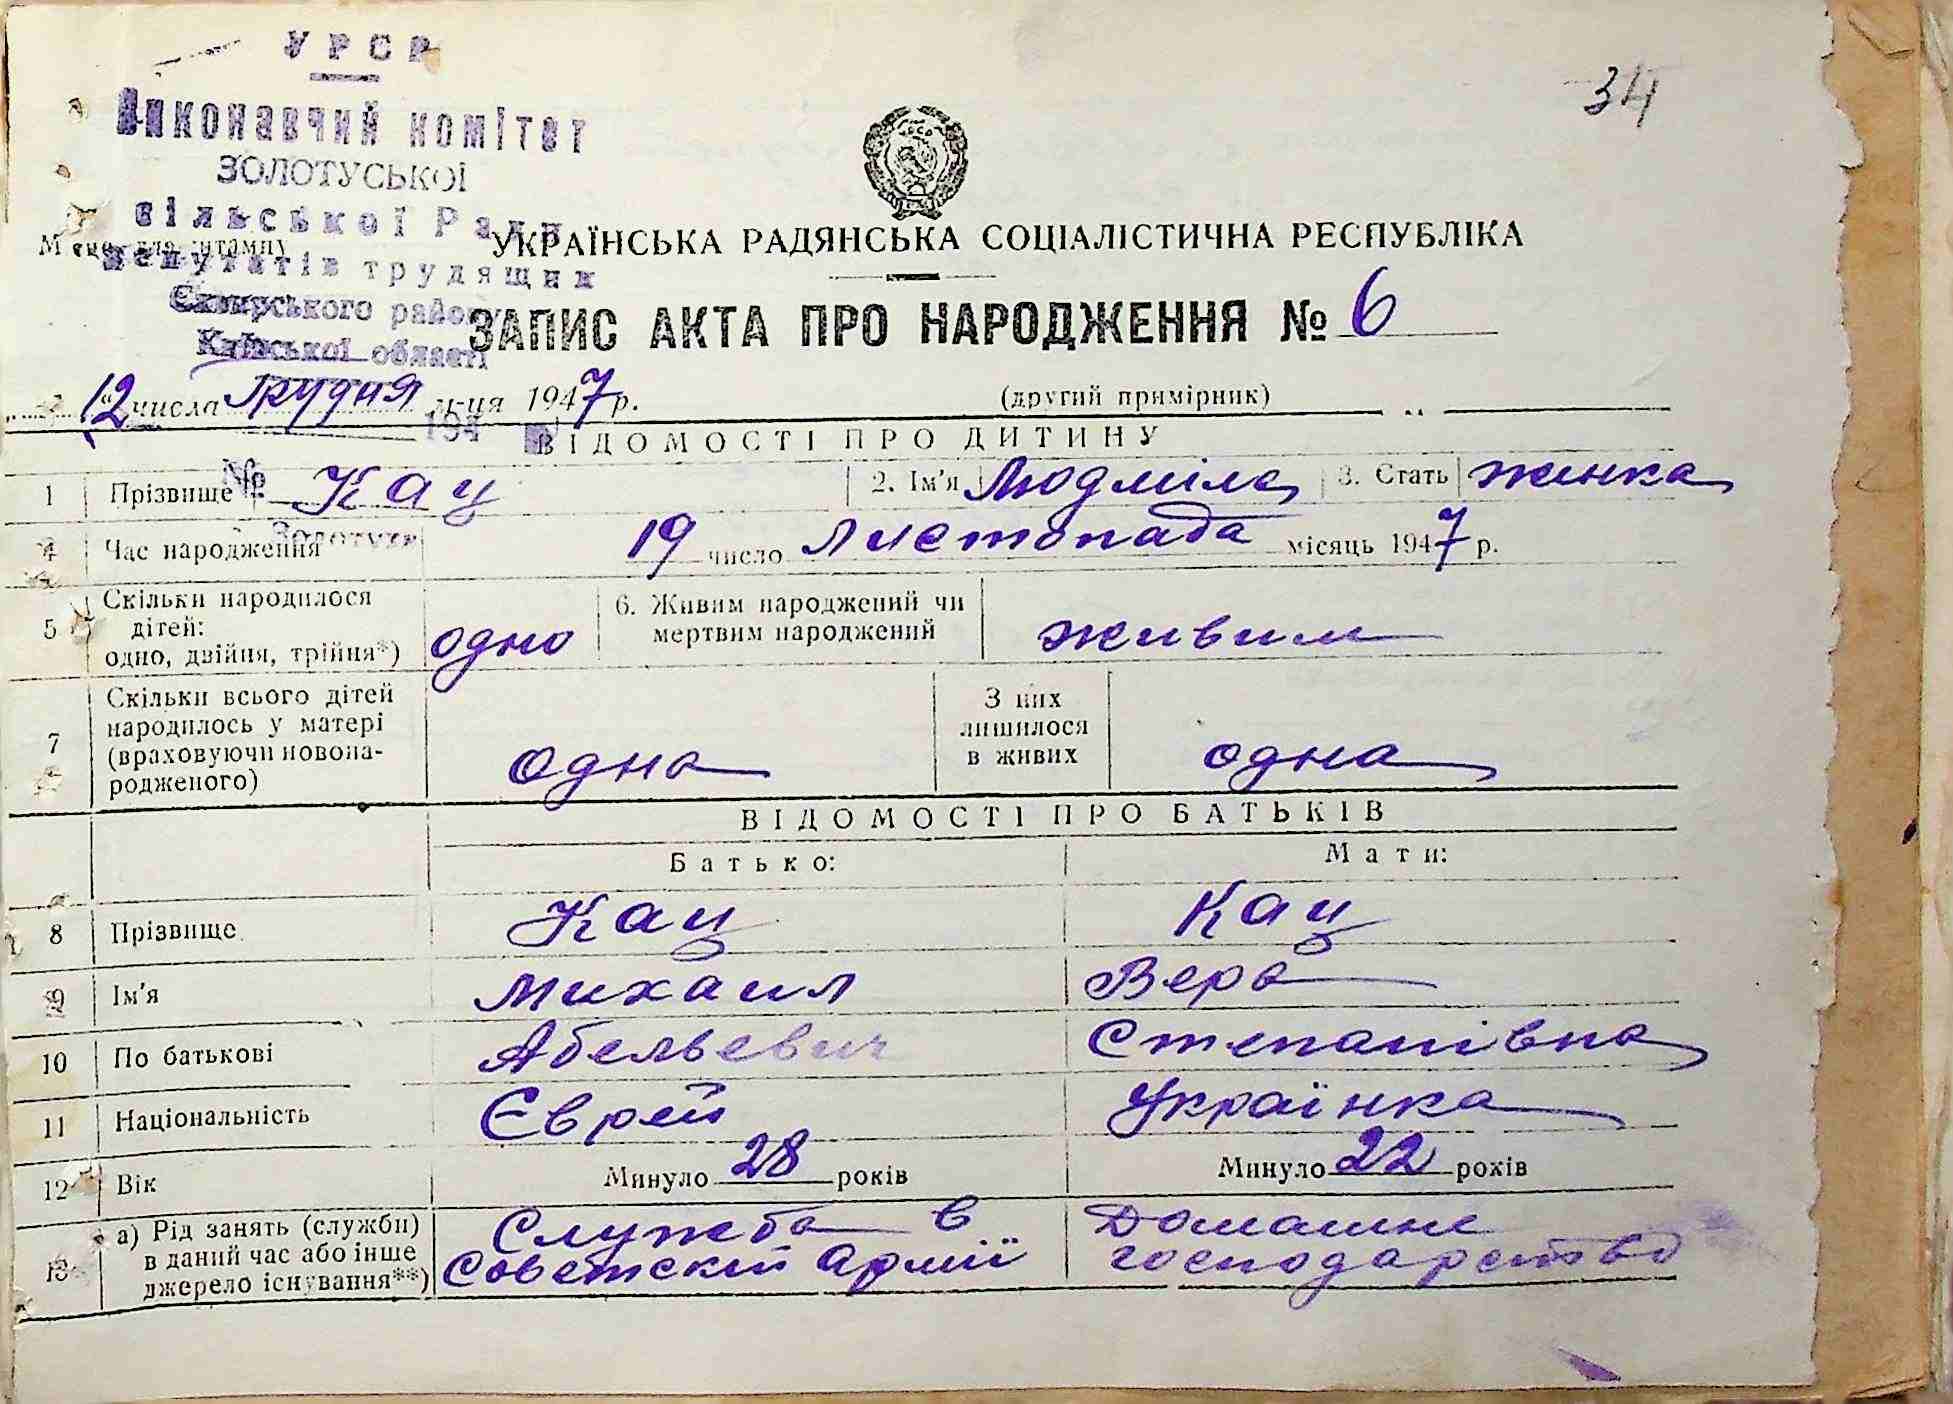 34
УРСР
Виконавчий комітет
ЗОЛОТУСЬКОЇ
сільської Ради
депутатів трудящих
Сквирського району
Київської області
Місце для штампу
УКРАЇНСЬКА РАДЯНСЬКА СОЦІАЛІСТИЧНА РЕСПУБЛІКА
ЗАПИС АКТА ПРО НАРОДЖЕННЯ № 6
„12“ числа Грудня м-ця 1947 р. (другий примірник)
194
ВІДОМОСТІ ПРО ДИТИНУ
№
1 Прізвище Кац 2. Ім'я Людміла 3. Стать жинка
4 Час народження 19 число Листопада місяць 1947 р.
5 Скільки народилося дітей: одно, двійня, трійня*) одно 6. Живим народжений чи мертвим народжений живим
7 Скільки всього дітей народилось у матері (враховуючи новонародженого) одна З них лишилося в живих одна
ВІДОМОСТІ ПРО БАТЬКІВ
Батько: Мати:
8 Прізвище Кац Кац
9 Ім'я Михаил Вера
10 По батькові Абельевич Степанівна
11 Національність Єврей Українка
12 Вік Минуло 28 років Минуло 22 років
13 а) Рід занять (служби) в даний час або інше джерело існування**) Служба в Советскей армії Домашне господарство